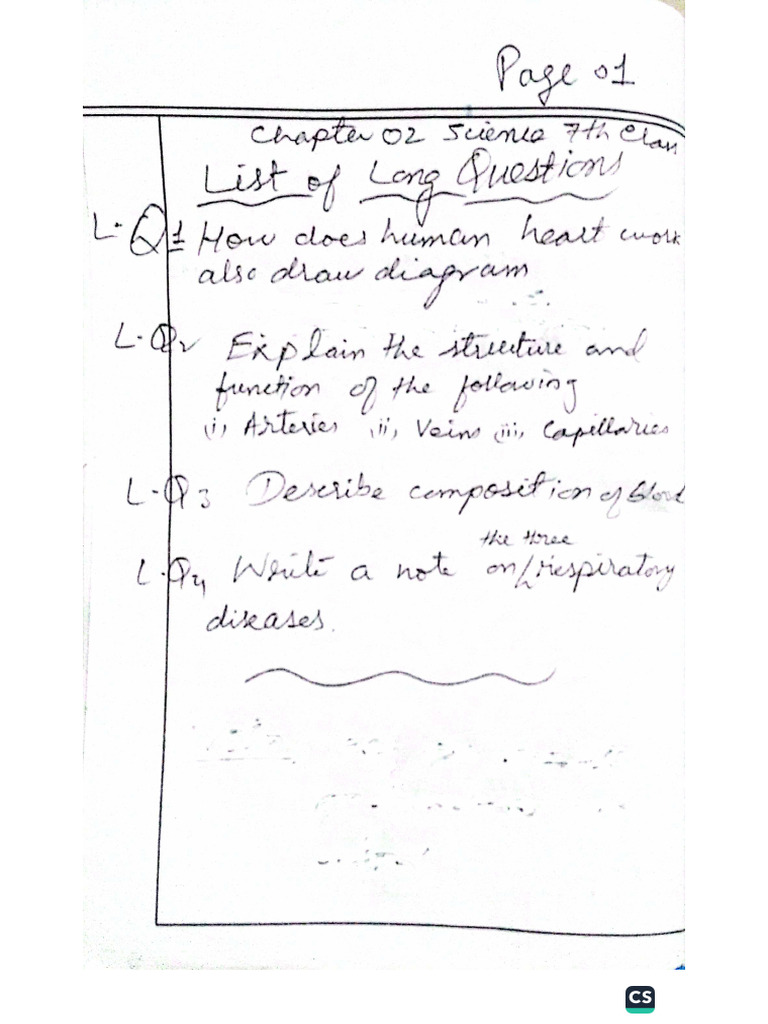 Page 01
Chapter 02 Science 7th Class
List of Long Questions
L. Q1 How does human heart work
also draw diagram
L. Q2 Explain the structure and
function of the following
(i) Arteries (ii) Veins (iii) Capillaries
L. Q3 Describe composition of blood
the three
L. Q4 Write a note on respiratory
diseases.
CS